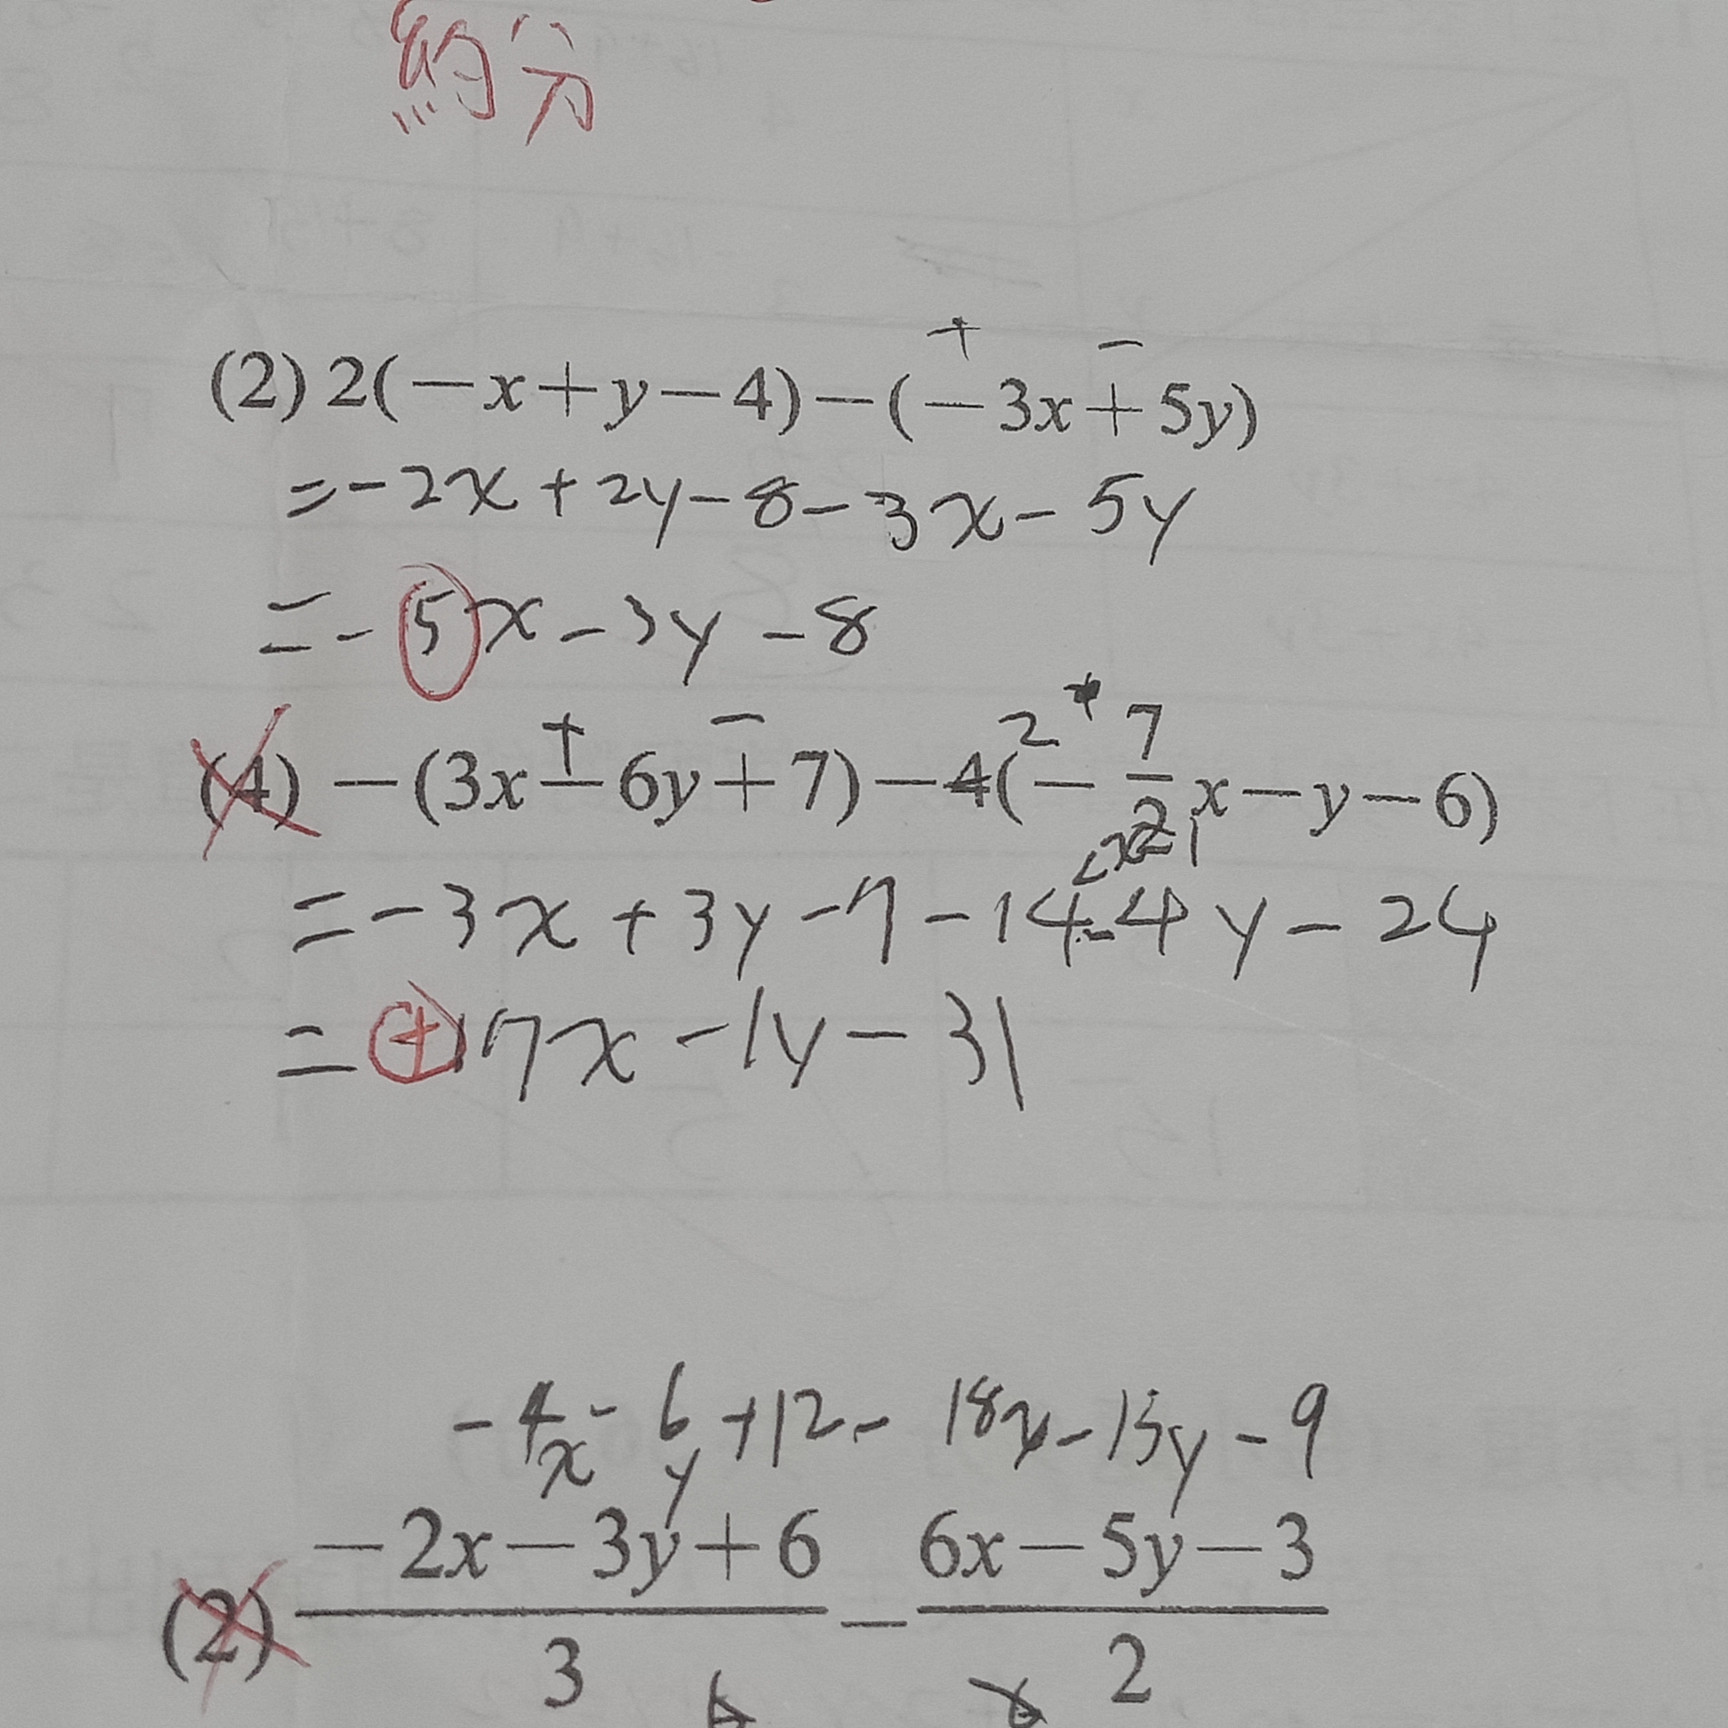 約分
+ −
(2) 2(−x+y−4)−(−3x+5y)
=-2x+2y-8-3x-5y
=-5x-3y-8
+ − 2 +
(4) −(3x−6y+7)−4(−7/2x−y−6)
=-3x+3y-7-14-4y-24
=+17x-1y-31
-4x-6y+12-18x-15y-9
(2) (−2x−3y+6)/3 − (6x−5y−3)/2